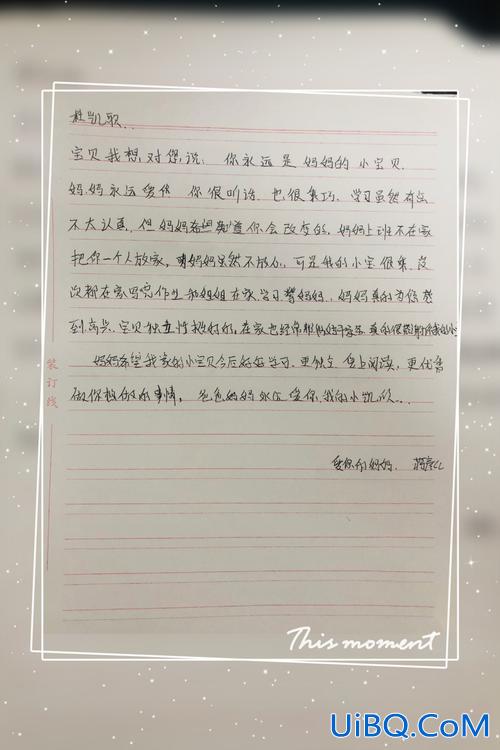 杜凯歌..
宝贝我想对您说: 你永远是妈妈的小宝贝.
妈妈永远爱你 你很听话 也很乖巧, 学习虽然有点
不太认真, 但妈妈知道你会改变的, 妈妈上班不在家
把你一个人放家, 妈妈虽然不放心, 可是我的小宝很乖, 每
次都在家写完作业和姐姐在家学习帮妈妈, 妈妈真的为你感
到高兴, 宝贝独立性挺好的, 在家也经常
妈妈希望我家的小宝贝今后好好学习, 更独立 爱上阅读, 更优秀
做你想做的事情, 爸爸妈妈永远爱你, 我的小凯歌...
爱你的妈妈.
装订线
This moment
UiBQ.CoM